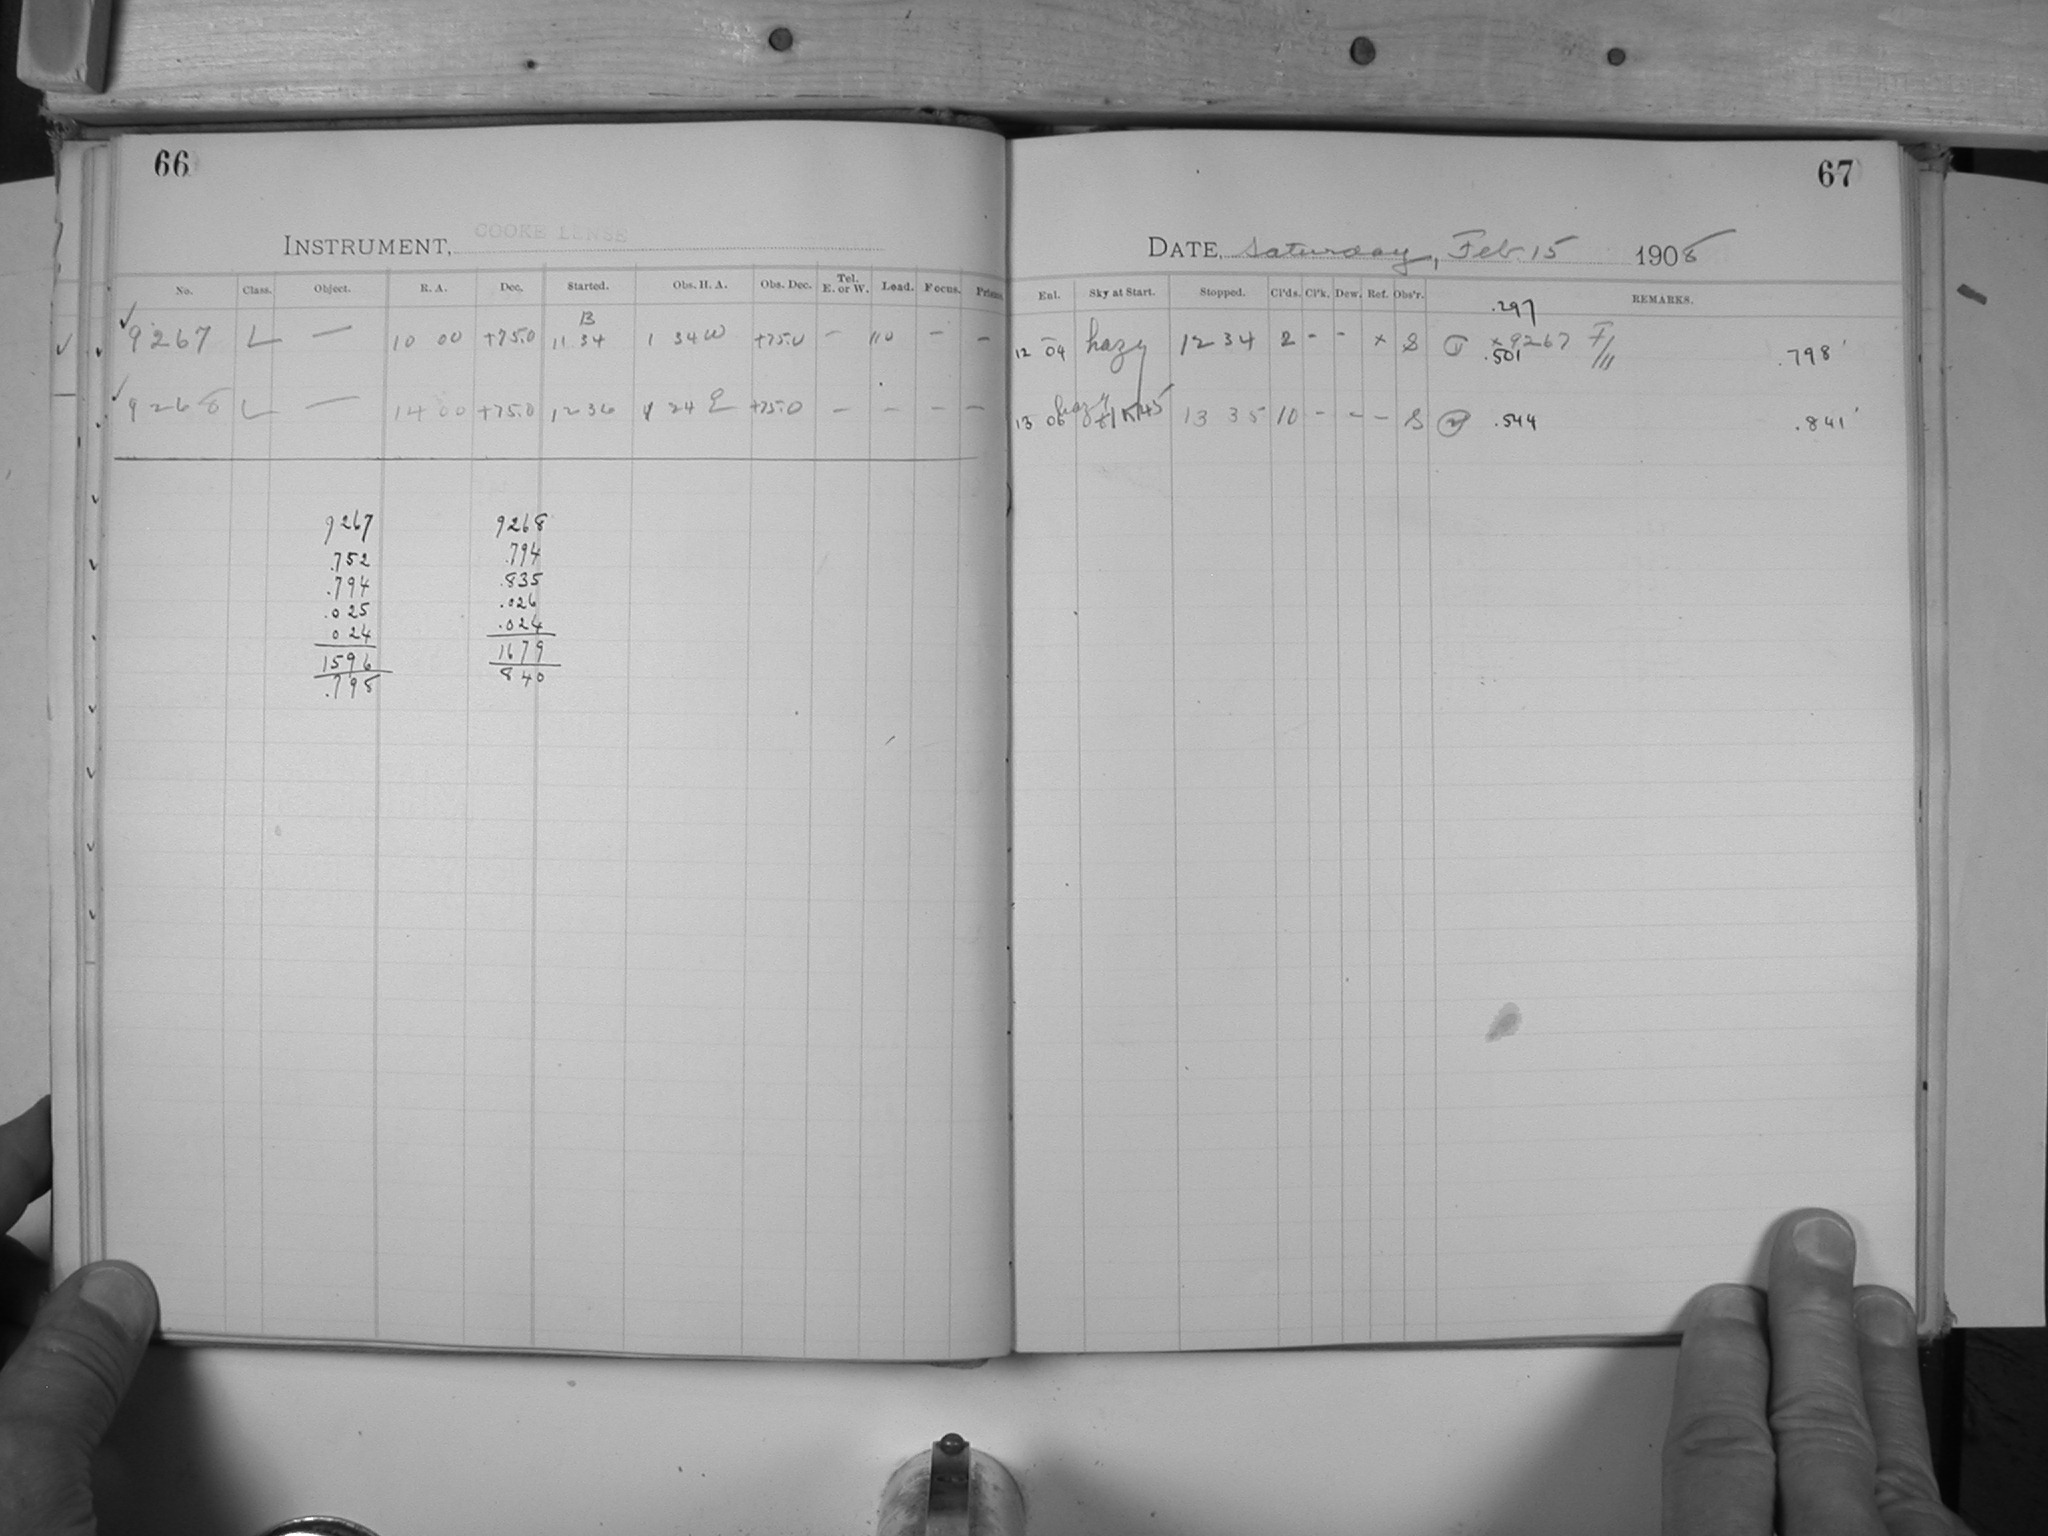 66
INSTRUMENT, COOKE LENSE
No. Class. Object. R. A. Dec. Started. Obs. H. A. Obs. Dec. Tel. E. or W. Load. Focus. Prisms
B
✓ 9267 L — 10 00 +75.0 11 34 1 34 W +75.0 – 110 – –
✓ 9268 L — 14 00 +75.0 12 36 1 24 E +75.0 – – – –
9267 9268
.752 .794
.794 .835
.025 .026
024 .024
1596 1679
.798 840
67
DATE, Saturday, Feb. 15 1908
Enl. Sky at Start. Stopped. Cl'ds. Cl'k. Dew. Ref. Obs'r. REMARKS.
.297
12 04 hazy 12 34 2 - - x S 1 x 9267 F/11
.501 .798
13 06 hazy 13 35 10 - - - S 2 .544 .841